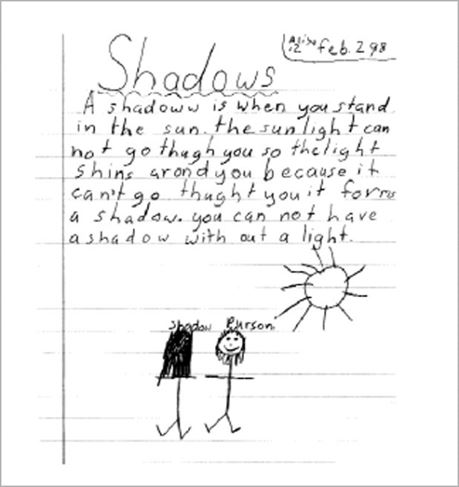 Feb. 2 98
Shadows
A shadoww is when you stand
in the sun. the sun light can
not go thugh you so the light
shins arond you because it
can't go thught you it forms
a shadow. you can not have
a shadow with out a light.
shadow Purson